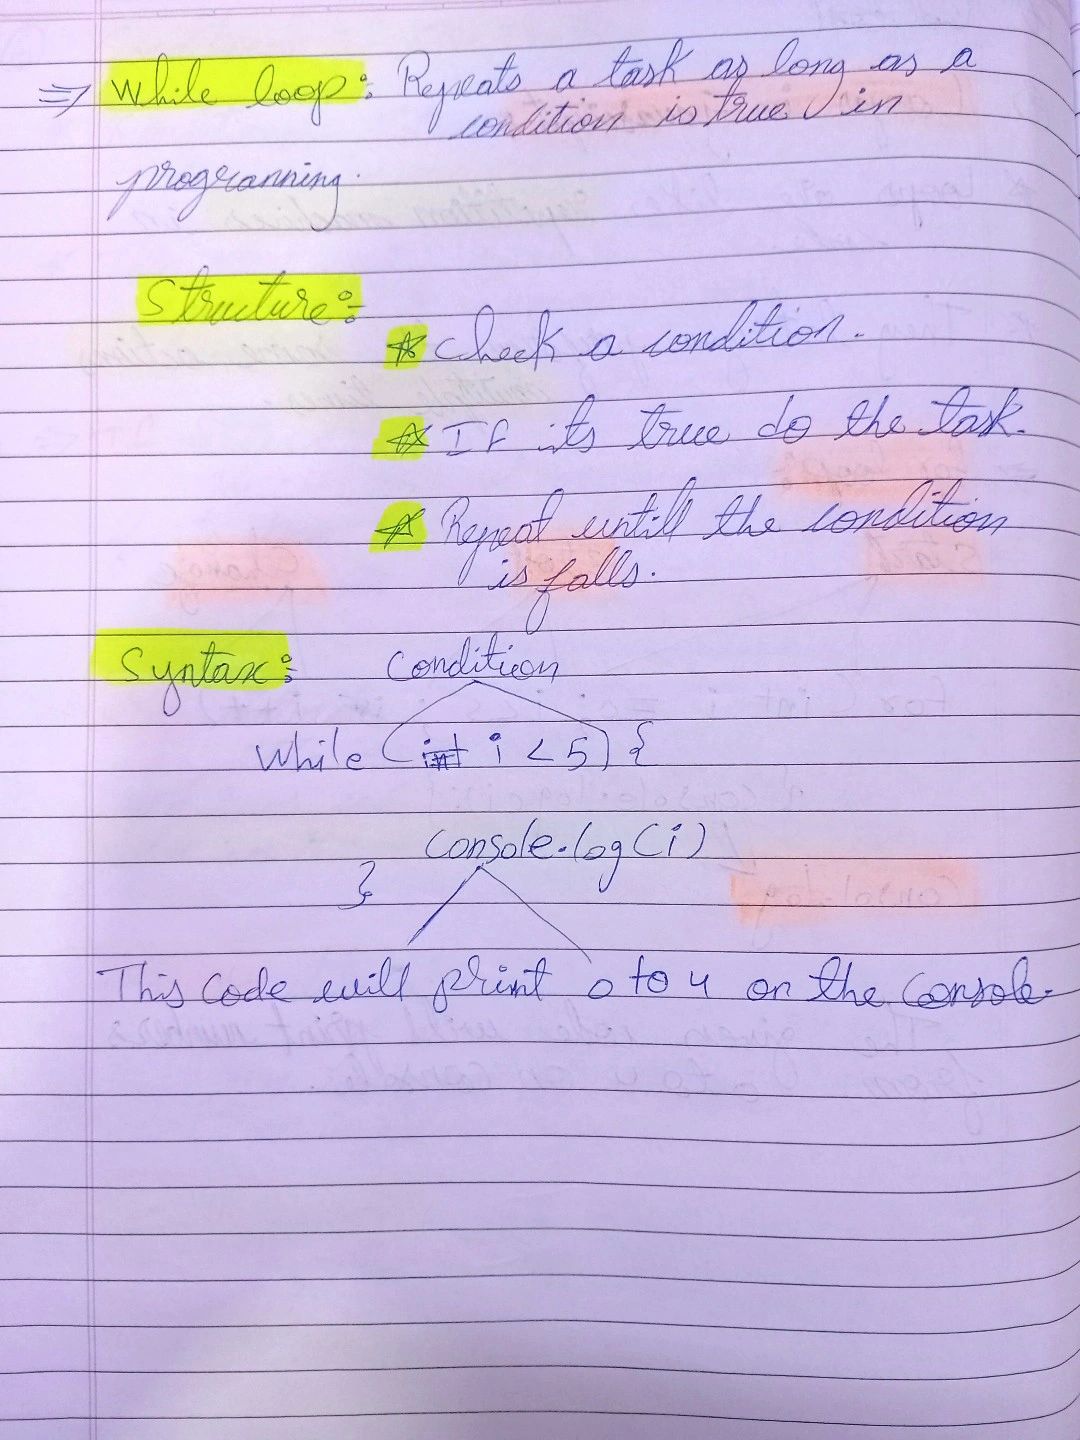 ⇒ While loop: Repeats a task as long as a
condition is true in
programming.
Structure:
☆ Check a condition.
☆ If its true do the task.
☆ Repeat untill the condition
is falls.
Syntax: Condition
While (int i < 5) {
Console.log(i)
}
This code will print 0 to 4 on the Console.